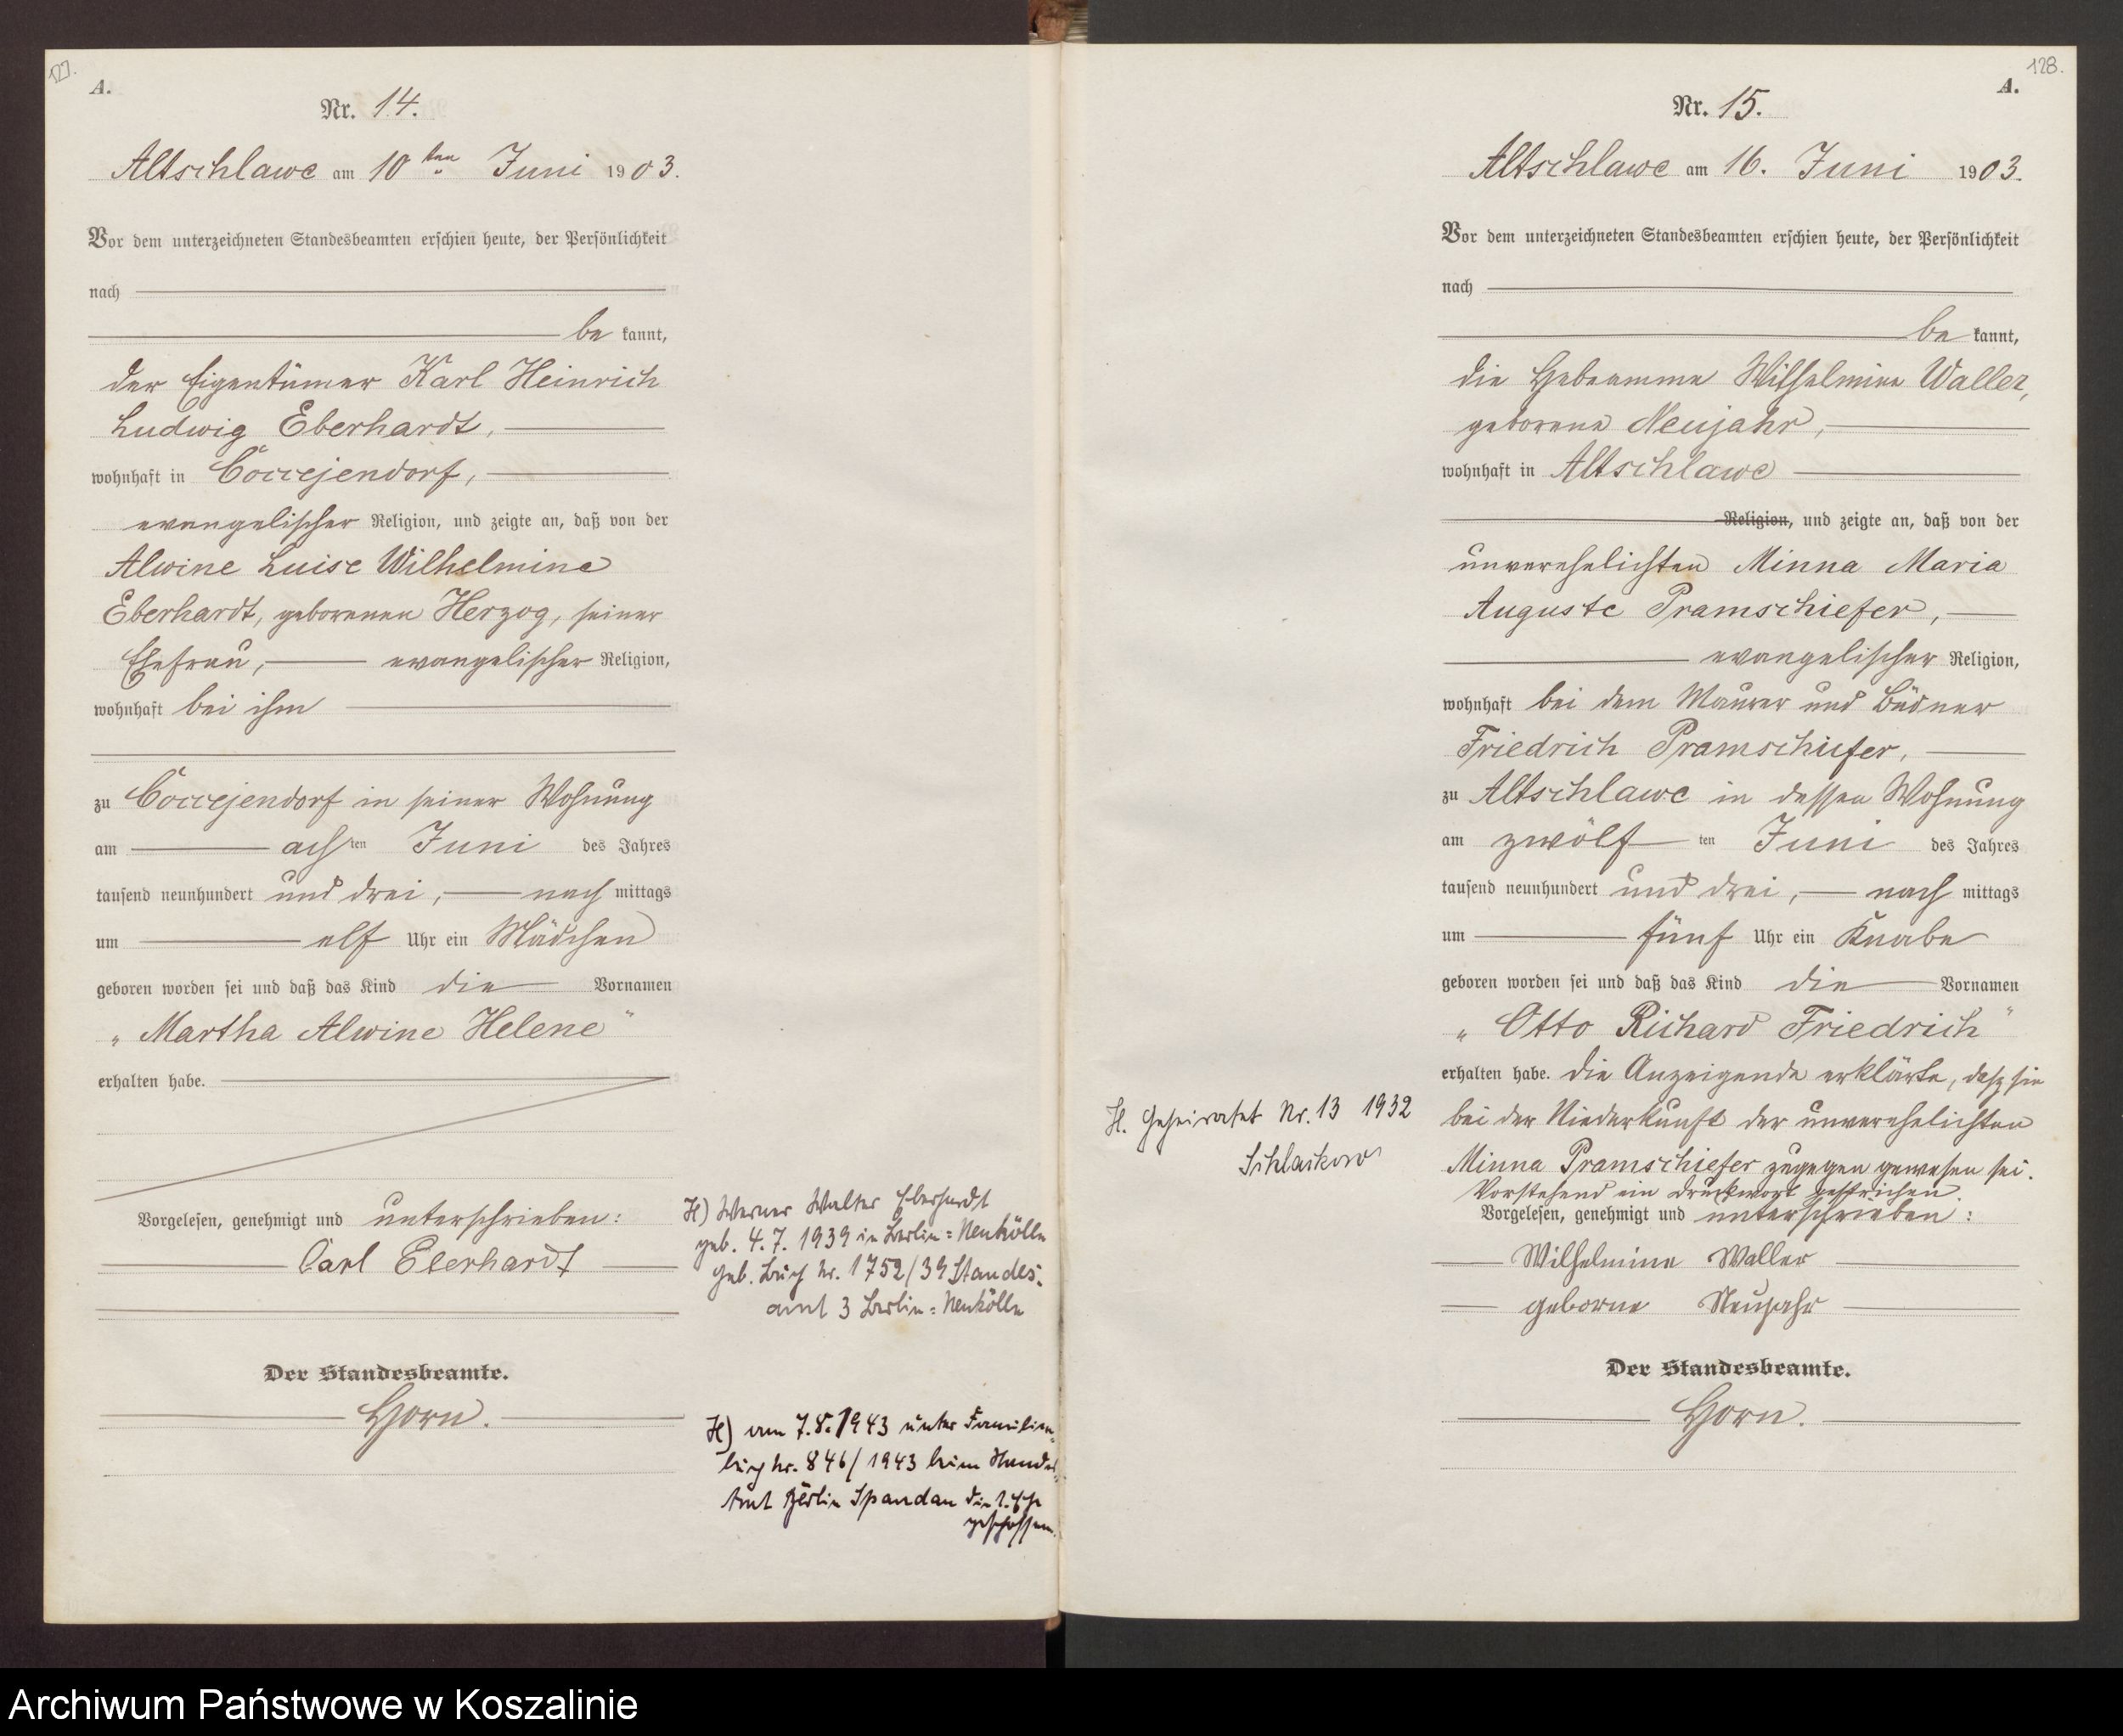 127.
A.
Nr. 14.
Altschlawe am 10ten Juni 1903.
Vor dem unterzeichneten Standesbeamten erschien heute, der Persönlichkeit
nach
be kannt,
der Eigentümer Karl Heinrich
Ludwig Eberhardt,
wohnhaft in Coccejendorf,
evangelischer Religion, und zeigte an, daß von der
Alwine Luise Wilhelmine
Eberhardt, geborenen Herzog, seiner
Ehefrau, evangelischer Religion,
wohnhaft bei ihm
zu Coccejendorf in seiner Wohnung
am achten Juni des Jahres
tausend neunhundert und drei, nach mittags
um elf Uhr ein Mädchen
geboren worden sei und daß das Kind die Vornamen
„Martha Alwine Helene"
erhalten habe.
Vorgelesen, genehmigt und unterschrieben:
Carl Eberhardt
Der Standesbeamte.
Horn.
H) Werner Walter Eberhardt
geb. 4.7.1939 in Berlin=Neukölln
Geb. Buch Nr. 1752/39 Standes-
amt 3 Berlin=Neukölln
H) am 7.8.1943 unter Familien-
buch Nr. 846/1943 beim Standes-
Amt Berlin Spandau die 1. Ehe
geschlossen.
128.
A.
Nr. 15.
Altschlawe am 16. Juni 1903.
Vor dem unterzeichneten Standesbeamten erschien heute, der Persönlichkeit
nach
be kannt,
die Hebeamme Wilhelmine Waller,
geborene Neujahr,
wohnhaft in Altschlawe
Religion, und zeigte an, daß von der
unverehelichten Minna Maria
Auguste Pramschiefer,
evangelischer Religion,
wohnhaft bei dem Maurer und Büdner
Friedrich Pramschiefer,
zu Altschlawe in dessen Wohnung
am zwölf ten Juni des Jahres
tausend neunhundert und drei, nach mittags
um fünf Uhr ein Knabe
geboren worden sei und daß das Kind die Vornamen
„Otto Richard Friedrich"
erhalten habe. Die Anzeigende erklärte, daß sie
bei der Niederkunft der unverehelichten
Minna Pramschiefer zugegen gewesen sei.
Vorstehend ein Druckwort gestrichen.
Vorgelesen, genehmigt und unterschrieben:
Wilhelmine Waller
geborne Neujahr
Der Standesbeamte.
Horn.
H. Geheiratet Nr. 13 1932
Schlackow
Archiwum Państwowe w Koszalinie